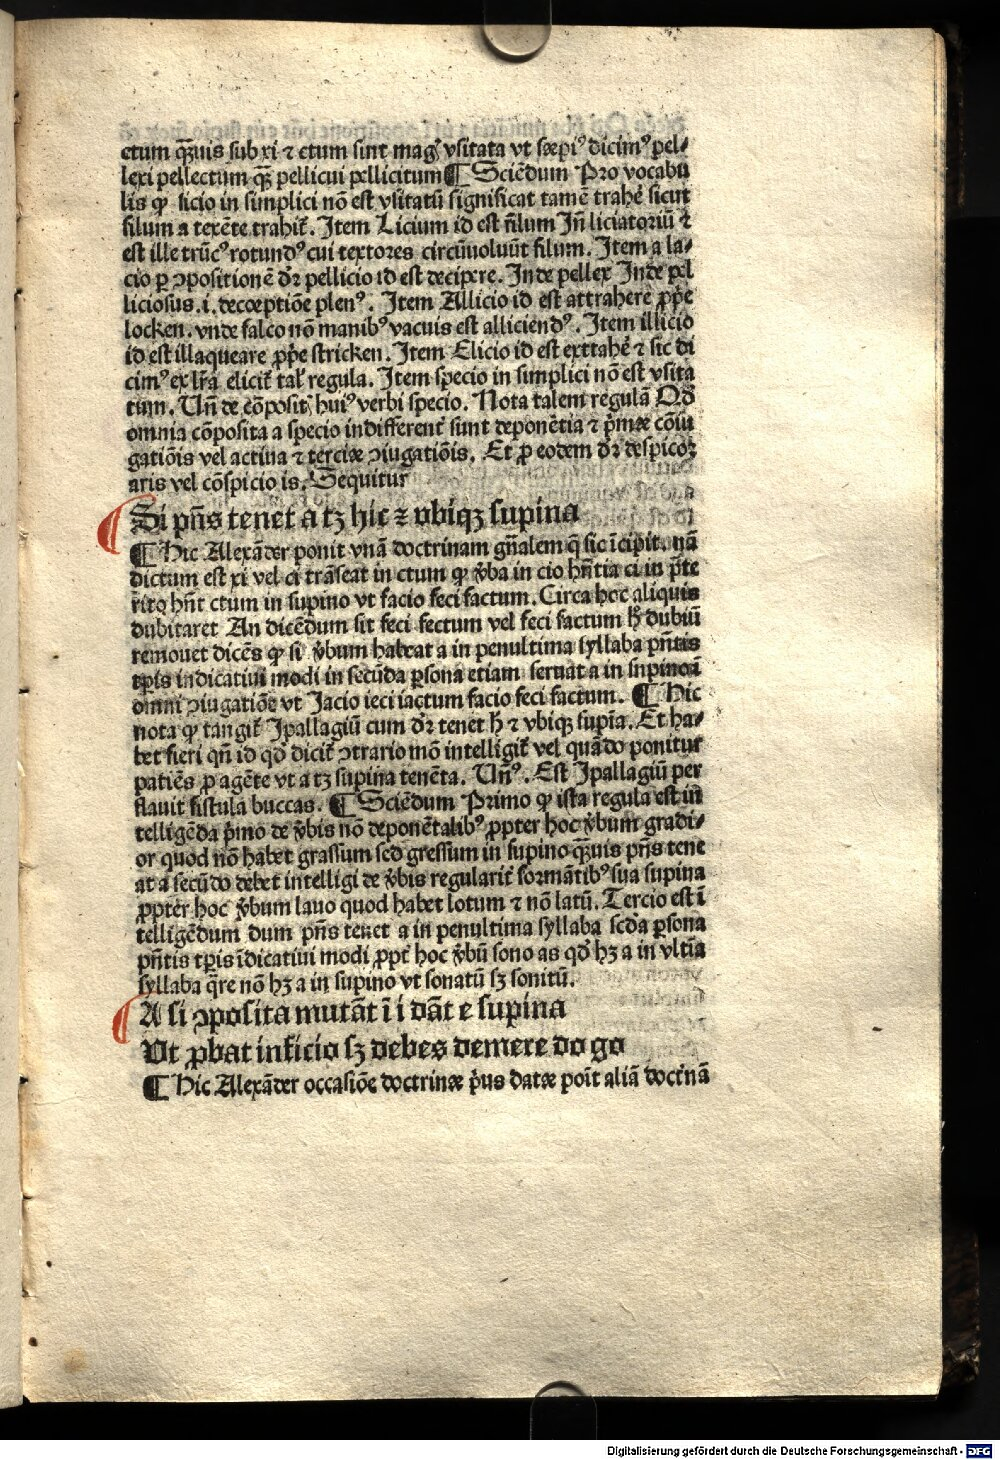 ctum qꝫuis sub xi ⁊ ctum sint magꝭ vsitata vt sæpiꝰ dicimꝰ pel⸗
lexi pellectum qꝫ pellicui pellicitum ¶ Sciēdum Pro vocabu
lis ꝙ licio in simplici nō est vsitatū significat tamē trahe᷑ sicut
filum a texēte trahit᷑. Item Licium id est filum Jn̄ liciatoriū ⁊
est ille trūcꝰ rotundꝰ cui textores circūuoluūt filum. Item a la⸗
cio ꝑ ɔpositionē dr̄ pellicio id est decipere. Inde pellex Inde pel
liciosus .i. deceptiōe plenꝰ. Item Allicio id est attrahere ꝓpe
locken. vnde falco nō manibꝰ vacuis est alliciendꝰ. Item illicio
id est illaqueare ꝓpe stricken. Item Elicio id est exttahe᷑ ⁊ sic di
cimꝰ ex lr̄a elicit᷑ tal᷑ regula. Item specio in simplici nō est vsita
tum. Un̄ de cōpositꝭ huiꝰ verbi specio. Nota talem regulā Qd̄
omnia cōposita a specio indifferent᷑ sunt deponētia ⁊ p̄mæ cōiu
gatiōis vel actiua ⁊ terciæ ɔiugatiōis. Et ꝓ eodem dr̄ despicoꝛ
aris vel cōspicio is. Sequitur
Si pn̄s tenet a tꝫ hic ⁊ vbiqꝫ supina
¶ Hic Alexāder ponit vnā doctrinam gn̄alem q̄ sic īcipit. nā
dictum est xi vel ci trāseat in ctum ꝙ v̄ba in cio hn̄tia ci in p̄te
rito hn̄t ctum in supino vt facio feci factum. Circa hoc aliquis
dubitaret An dicēdum sit feci fectum vel feci factum h̄ dubiū
remouet dicēs ꝙ si v̄bum habeat a in penultima syllaba pn̄tis
tp̄is indicatiui modi in secūda ꝑsona etiam seruat a in supino ī
omni ɔiugatiōe vt Jacio ieci iactum facio feci factum. ¶ Hic
nota ꝙ tangit᷑ Ipallagiū cum dr̄ tenet h̄ ⁊ vbiqꝫ supīa. Et ha⸗
bet fieri qn̄ id qd̄ dicit᷑ ɔtrario mō intelligit᷑ vel quādo ponitur
patiēs ꝓ agēte vt a tꝫ supina tenēta. Un̄ꝰ. Est Ipallagiū per
flauit fistula buccas. ¶ Sciēdum Primo ꝙ ista regula est in
telligēda p̄mo de v̄bis nō deponētalibꝰ ꝓpter hoc v̄bum gradi⸗
or quod nō habet grassum sed gressum in supino qꝫuis pn̄s tene
at a secūdo debet intelligi de v̄bis regularit᷑ formātibꝰ sua supina
ꝓpter hoc v̄bum lauo quod habet lotum ⁊ nō latū. Tercio est ī
telligēdum dum pn̄s tenet a in penultima syllaba scd̄a ꝑsona
pn̄tis tp̄is īdicatiui modi ꝓpt᷑ hoc v̄bū sono as qd̄ hꝫ a in vltīa
syllaba q̄re nō hꝫ a in supino vt sonatū sꝫ sonitū.
A si ɔposita mutāt ī i dāt e supina
Ut ꝓbat inficio sꝫ debes demere do go
¶ Hic Alexāder occasiōe doctrinæ p̄us datæ poīt aliā doctͥnā
Digitalisierung gefördert durch die Deutsche Forschungsgemeinschaft - DFG